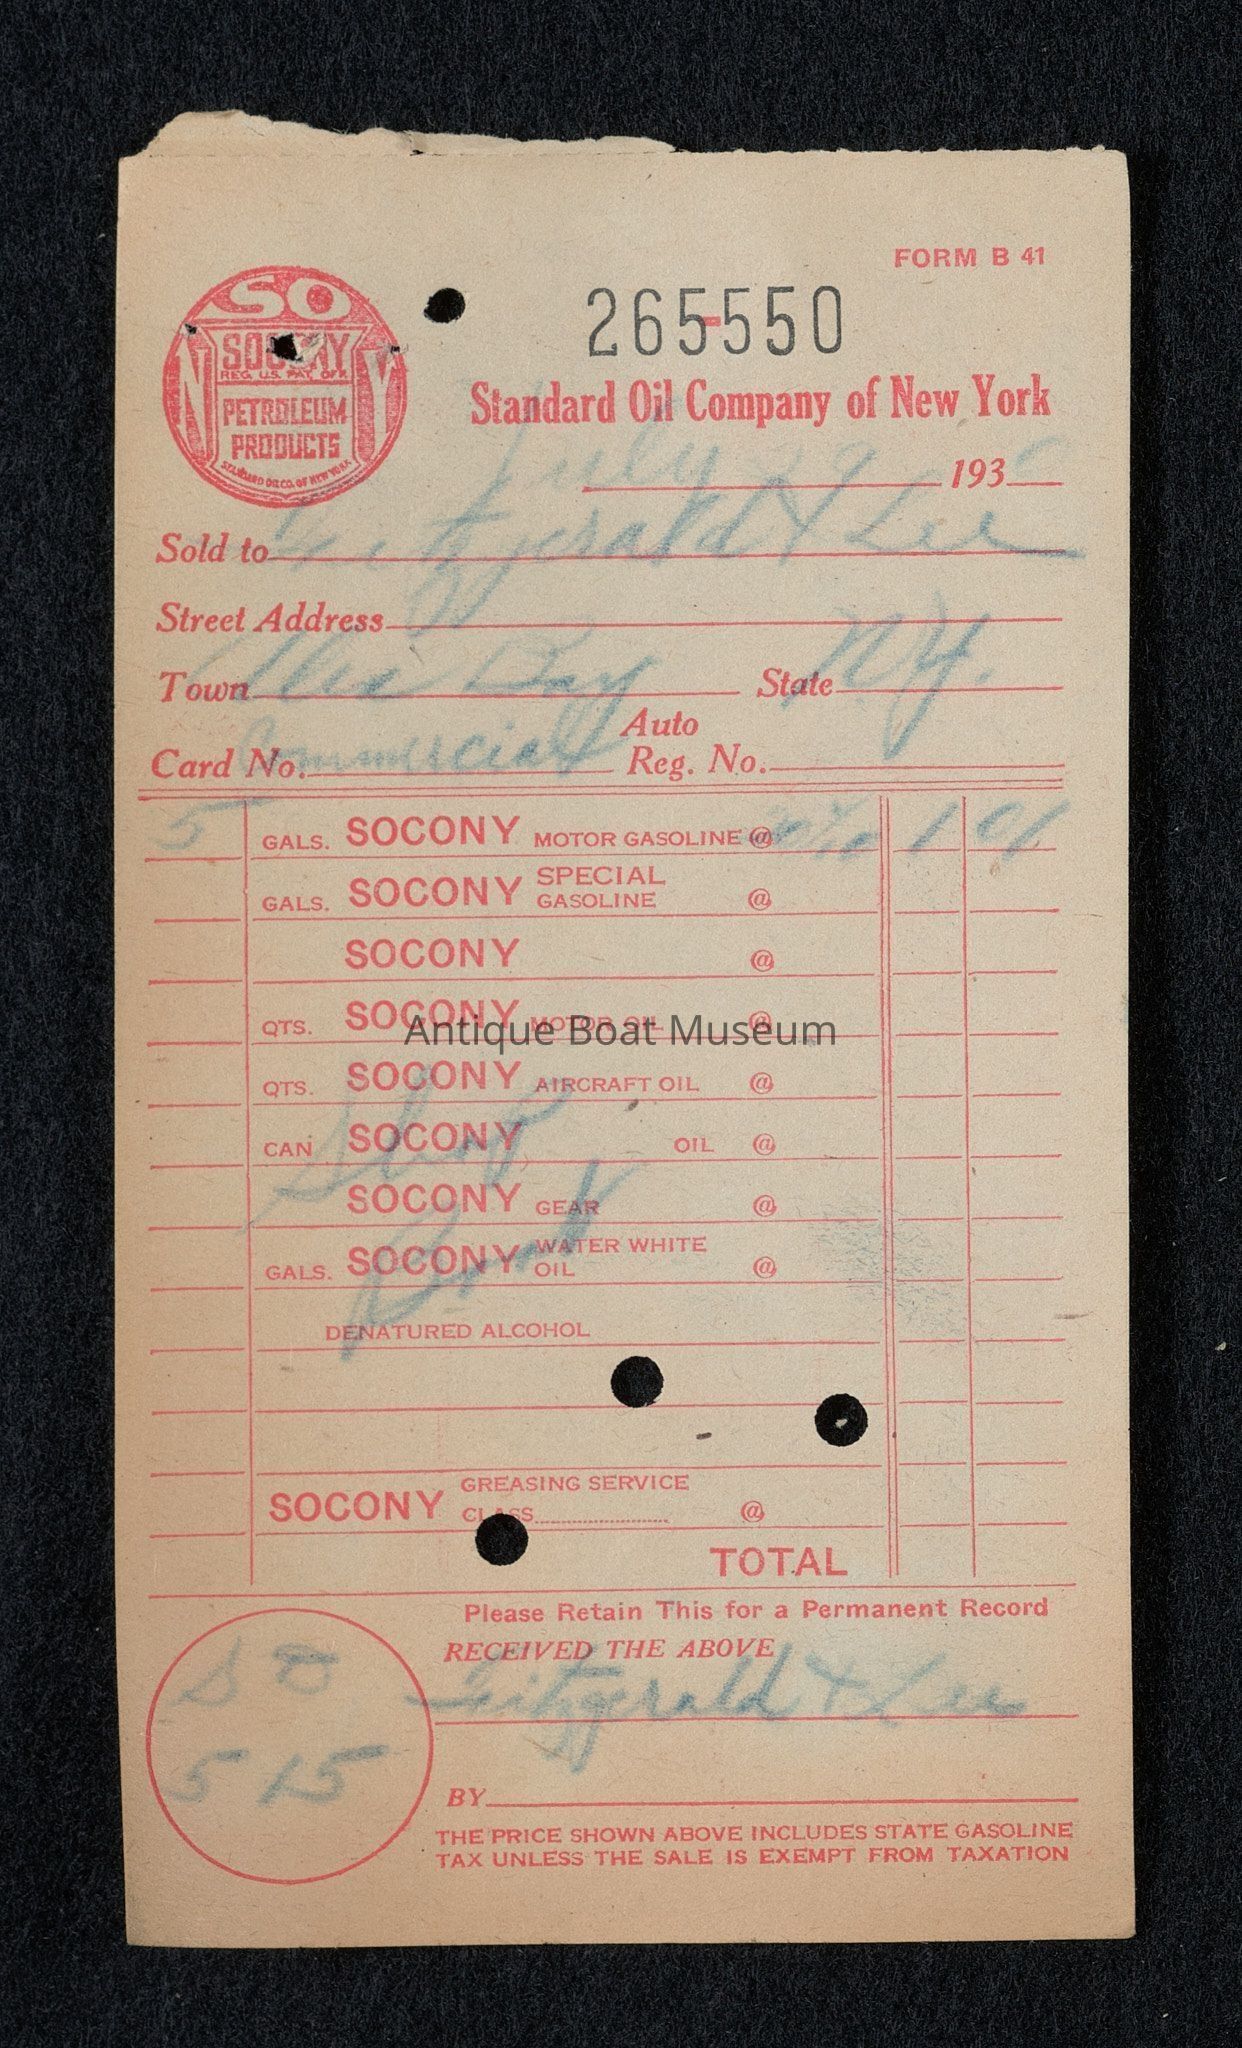 FORM B 41
SO
SOCONY
REG. U.S. PAT. OFF.
PETROLEUM
PRODUCTS
STANDARD OIL CO. OF NEW YORK
265550
Standard Oil Company of New York
July 29 193
Sold to Fitzgerald & Lee
Street Address
Town Alex Bay State N.Y.
Card No. Commercial Auto Reg. No.
5 GALS. SOCONY MOTOR GASOLINE @ 1 01
GALS. SOCONY SPECIAL GASOLINE @
SOCONY @
QTS. SOCONY MOTOR OIL @
Antique Boat Museum
QTS. SOCONY AIRCRAFT OIL @
CAN SOCONY OIL @
SOCONY GEAR @
GALS. SOCONY WATER WHITE OIL @
DENATURED ALCOHOL
SOCONY GREASING SERVICE
CLASS @
TOTAL
Please Retain This for a Permanent Record
RECEIVED THE ABOVE
Fitzgerald & Lee
5 15
BY
THE PRICE SHOWN ABOVE INCLUDES STATE GASOLINE
TAX UNLESS THE SALE IS EXEMPT FROM TAXATION